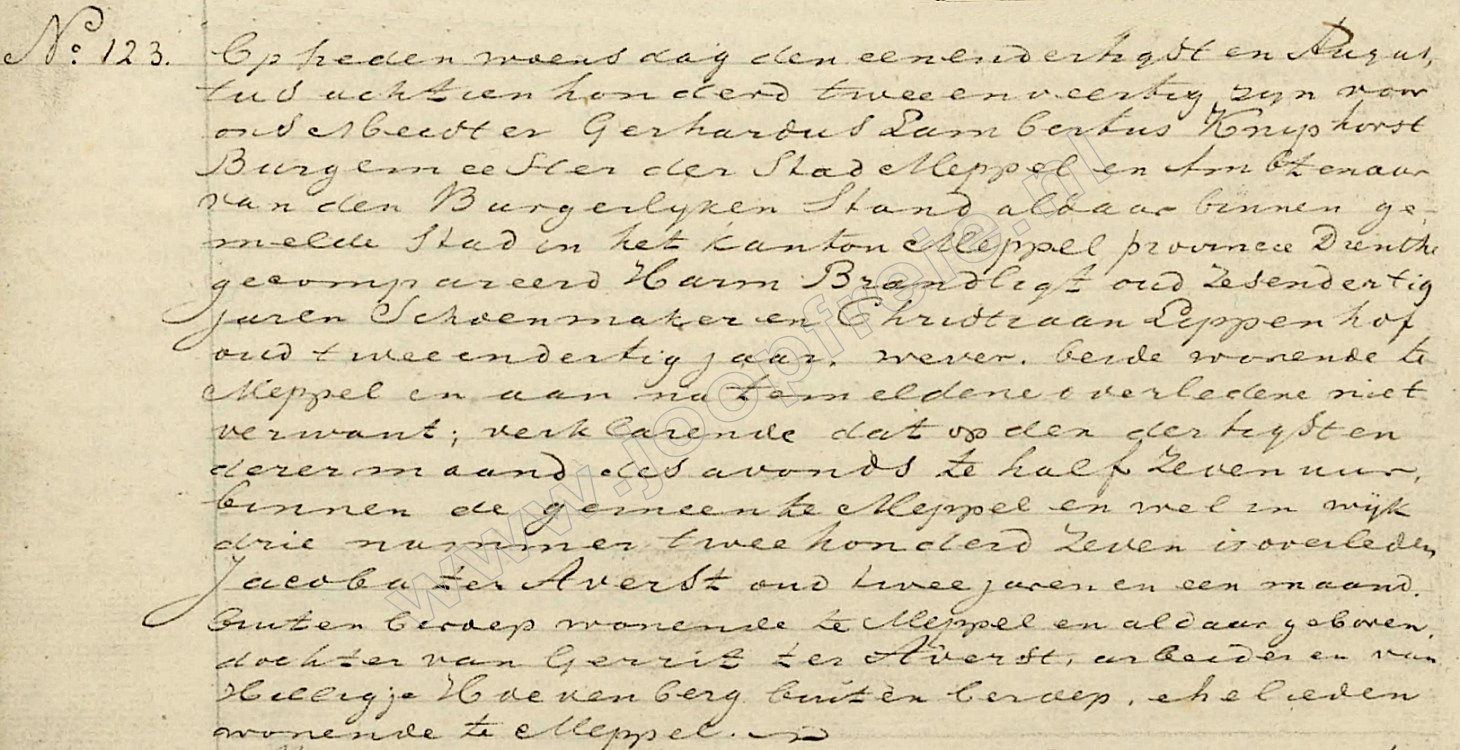 No. 123. Op heden woensdag den eenendertigsten Augus,
tus achttienhonderd tweeenveertig zyn voor
ons Gerhardus Lambertus Knyphorst
Burgemeester der Stad Meppel en Ambtenaar
van den Burgerlyken Stand aldaar binnen ge-
melde Stad in het kanton Meppel provincie Drenthe
gecompareerd Harm Brandligt oud zesendertig
jaren Schoenmaker en Christiaan Lippenhof
oud tweeendertig jaar, wever, beide wonende te
Meppel en aan na temeldene overledene niet
verwant; verklarende dat op den dertigsten
dezer maand des avonds te half zeven uur,
binnen de gemeente Meppel en wel in wijk
drie nummer tweehonderd zeven is overleden
Jacoba ter Averst oud twee jaren en een maand,
buiten beroep wonende te Meppel en aldaar geboren,
dochter van Gerrit ter Averst, arbeider en van
Hilligje Hoevenberg buiten beroep, ehelieden
wonende te Meppel.
www.joopfreie.nl